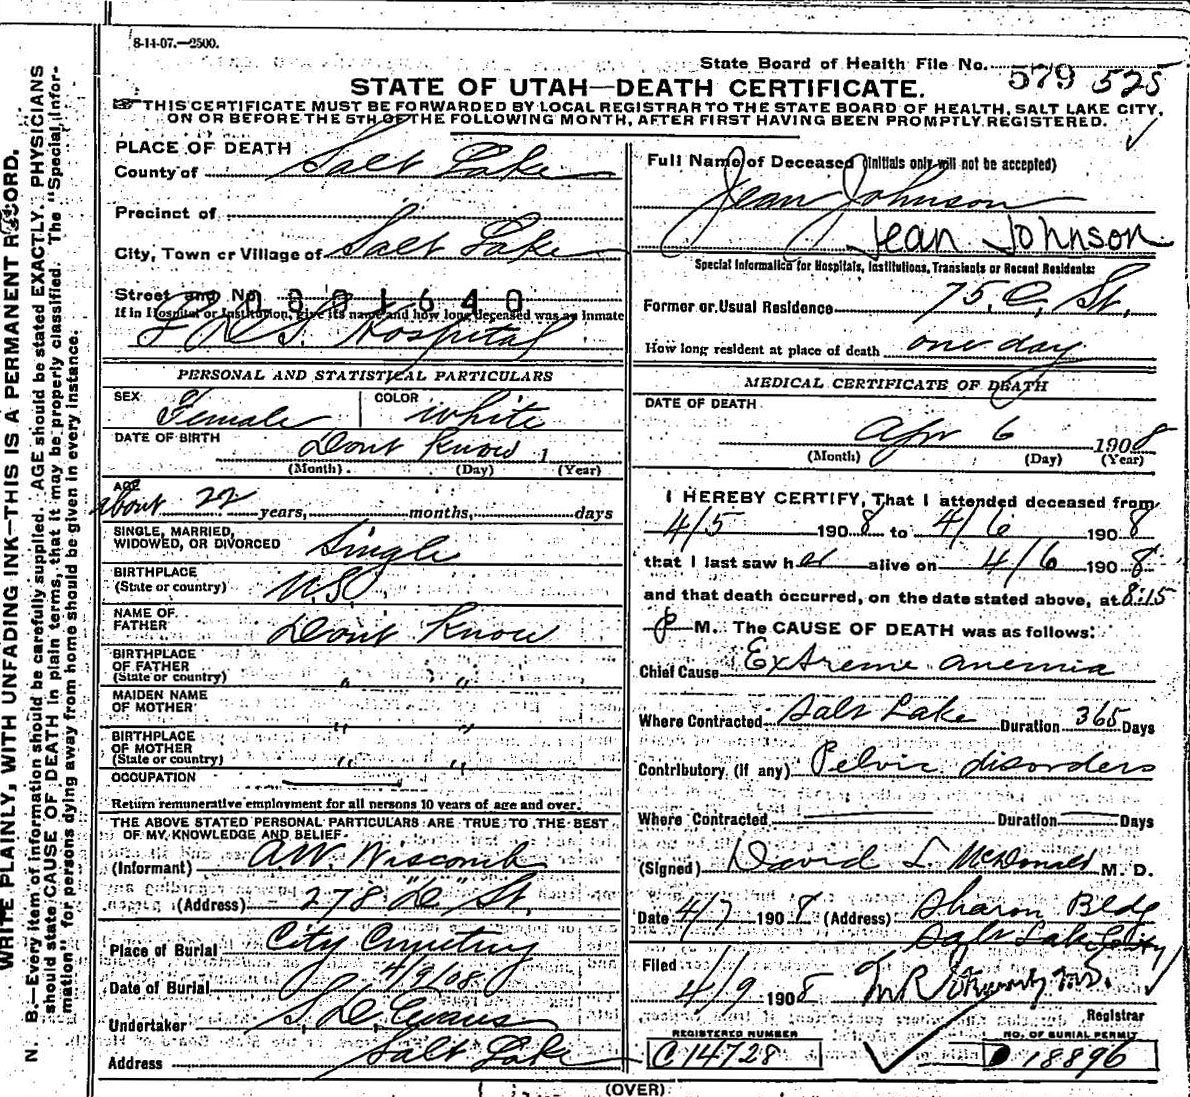 8-14-07.—2500.
State Board of Health File No. 579 525
STATE OF UTAH—DEATH CERTIFICATE.
THIS CERTIFICATE MUST BE FORWARDED BY LOCAL REGISTRAR TO THE STATE BOARD OF HEALTH, SALT LAKE CITY,
ON OR BEFORE THE 5TH OF THE FOLLOWING MONTH, AFTER FIRST HAVING BEEN PROMPTLY REGISTERED.
WRITE PLAINLY, WITH UNFADING INK—THIS IS A PERMANENT RECORD.
N. B.—Every item of information should be carefully supplied. AGE should be stated EXACTLY. PHYSICIANS
should state CAUSE OF DEATH in plain terms, that it may be properly classified. The "Special Infor-
mation" for persons dying away from home should be given in every instance.
PLACE OF DEATH
County of Salt Lake
Precinct of
City, Town or Village of Salt Lake
Street and No. 0001640
If in Hospital or Institution, give its name and how long deceased was an inmate
L D S. Hospital
PERSONAL AND STATISTICAL PARTICULARS
SEX Female COLOR White
DATE OF BIRTH Dont Know 1
(Month) (Day) (Year)
AGE
about 22 years, months, days
SINGLE, MARRIED,
WIDOWED, OR DIVORCED Single
BIRTHPLACE
(State or country) U.S.
NAME OF
FATHER Dont Know
BIRTHPLACE
OF FATHER
(State or country) " "
MAIDEN NAME
OF MOTHER " "
BIRTHPLACE
OF MOTHER
(State or country) " "
OCCUPATION
Return remunerative employment for all persons 10 years of age and over.
THE ABOVE STATED PERSONAL PARTICULARS ARE TRUE TO THE BEST
OF MY KNOWLEDGE AND BELIEF
(Informant) A.W. Wiscomb
(Address) 278 "D" St.
Place of Burial City Cemetery
Date of Burial 4/9/08
Undertaker S. D. Evans
Address Salt Lake
Full Name of Deceased (Initials only will not be accepted)
Jean Johnson
Jean Johnson
Special Information for Hospitals, Institutions, Transients or Recent Residents:
Former or Usual Residence 75. C. St.
How long resident at place of death one day
MEDICAL CERTIFICATE OF DEATH
DATE OF DEATH
Apr 6 1908
(Month) (Day) (Year)
I HEREBY CERTIFY, That I attended deceased from
4/5 190 8 to 4/6 190 8
that I last saw her alive on 4/6 190 8
and that death occurred, on the date stated above, at 8:15
P M. The CAUSE OF DEATH was as follows:
Chief Cause Extreme anemia
Where Contracted Salt Lake Duration 365 Days
Contributory (if any) Pelvic disorders
Where Contracted Duration Days
(Signed) David L McDonald M. D.
Date 4/7 190 8 (Address) Sharon Bldg
Salt Lake City
Filed
4/9 190 8
Registrar
REGISTERED NUMBER
C 14728
NO. OF BURIAL PERMIT
D 18896
(OVER)